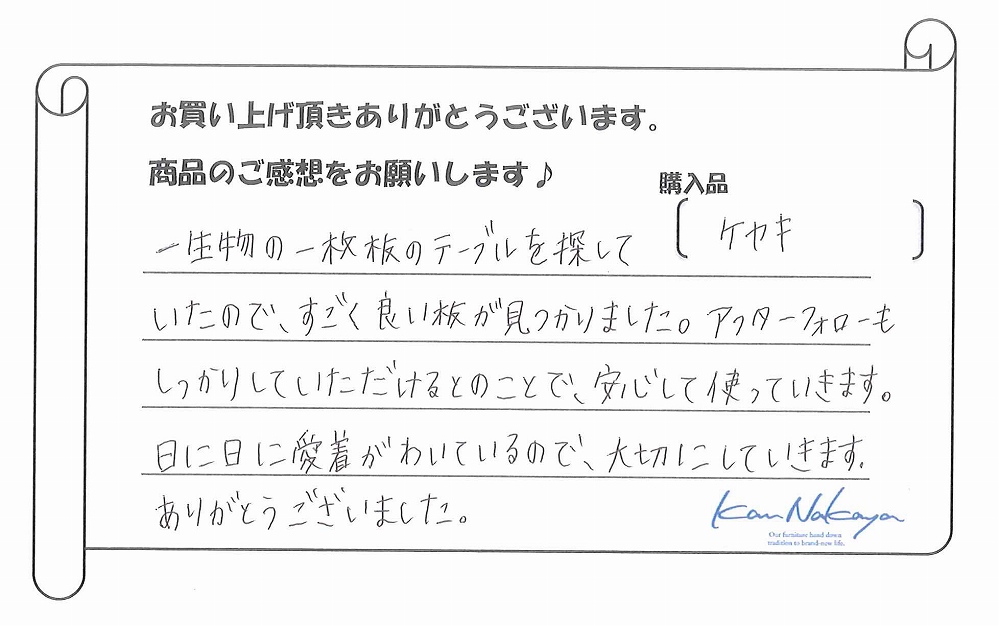 お買い上げ頂きありがとうございます。
商品のご感想をお願いします♪
購入品
ケヤキ
一生物の一枚板のテーブルを探して
いたので、すごく良い板が見つかりました。アフターフォローも
しっかりしていただけるとのことで、安心して使っていきます。
日に日に愛着がわいているので、大切にしていきます。
ありがとうございました。
Kan Nakaya
Our furniture hand down
tradition to brand-new life.